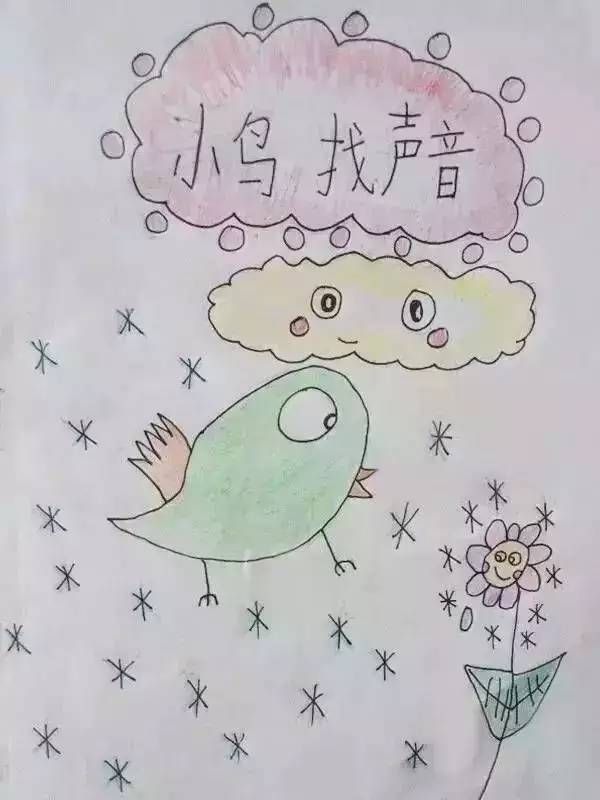 小鸟 找声音